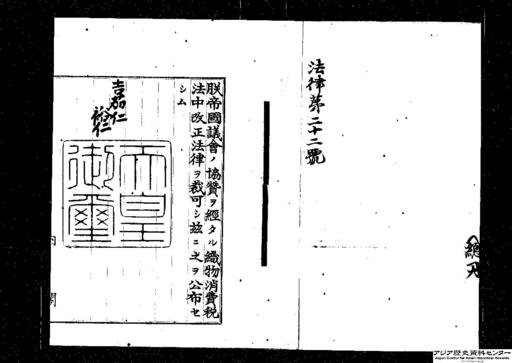 法律第二十二號
朕帝國議會ノ協贊ヲ經タル織物消費税
法中改正法律ヲ裁可シ茲ニ之ヲ公布セ
シム
嘉仁
裕仁
天皇
御璽
内閣
アジア歴史資料センター
Japan Center for Asian Historical Records